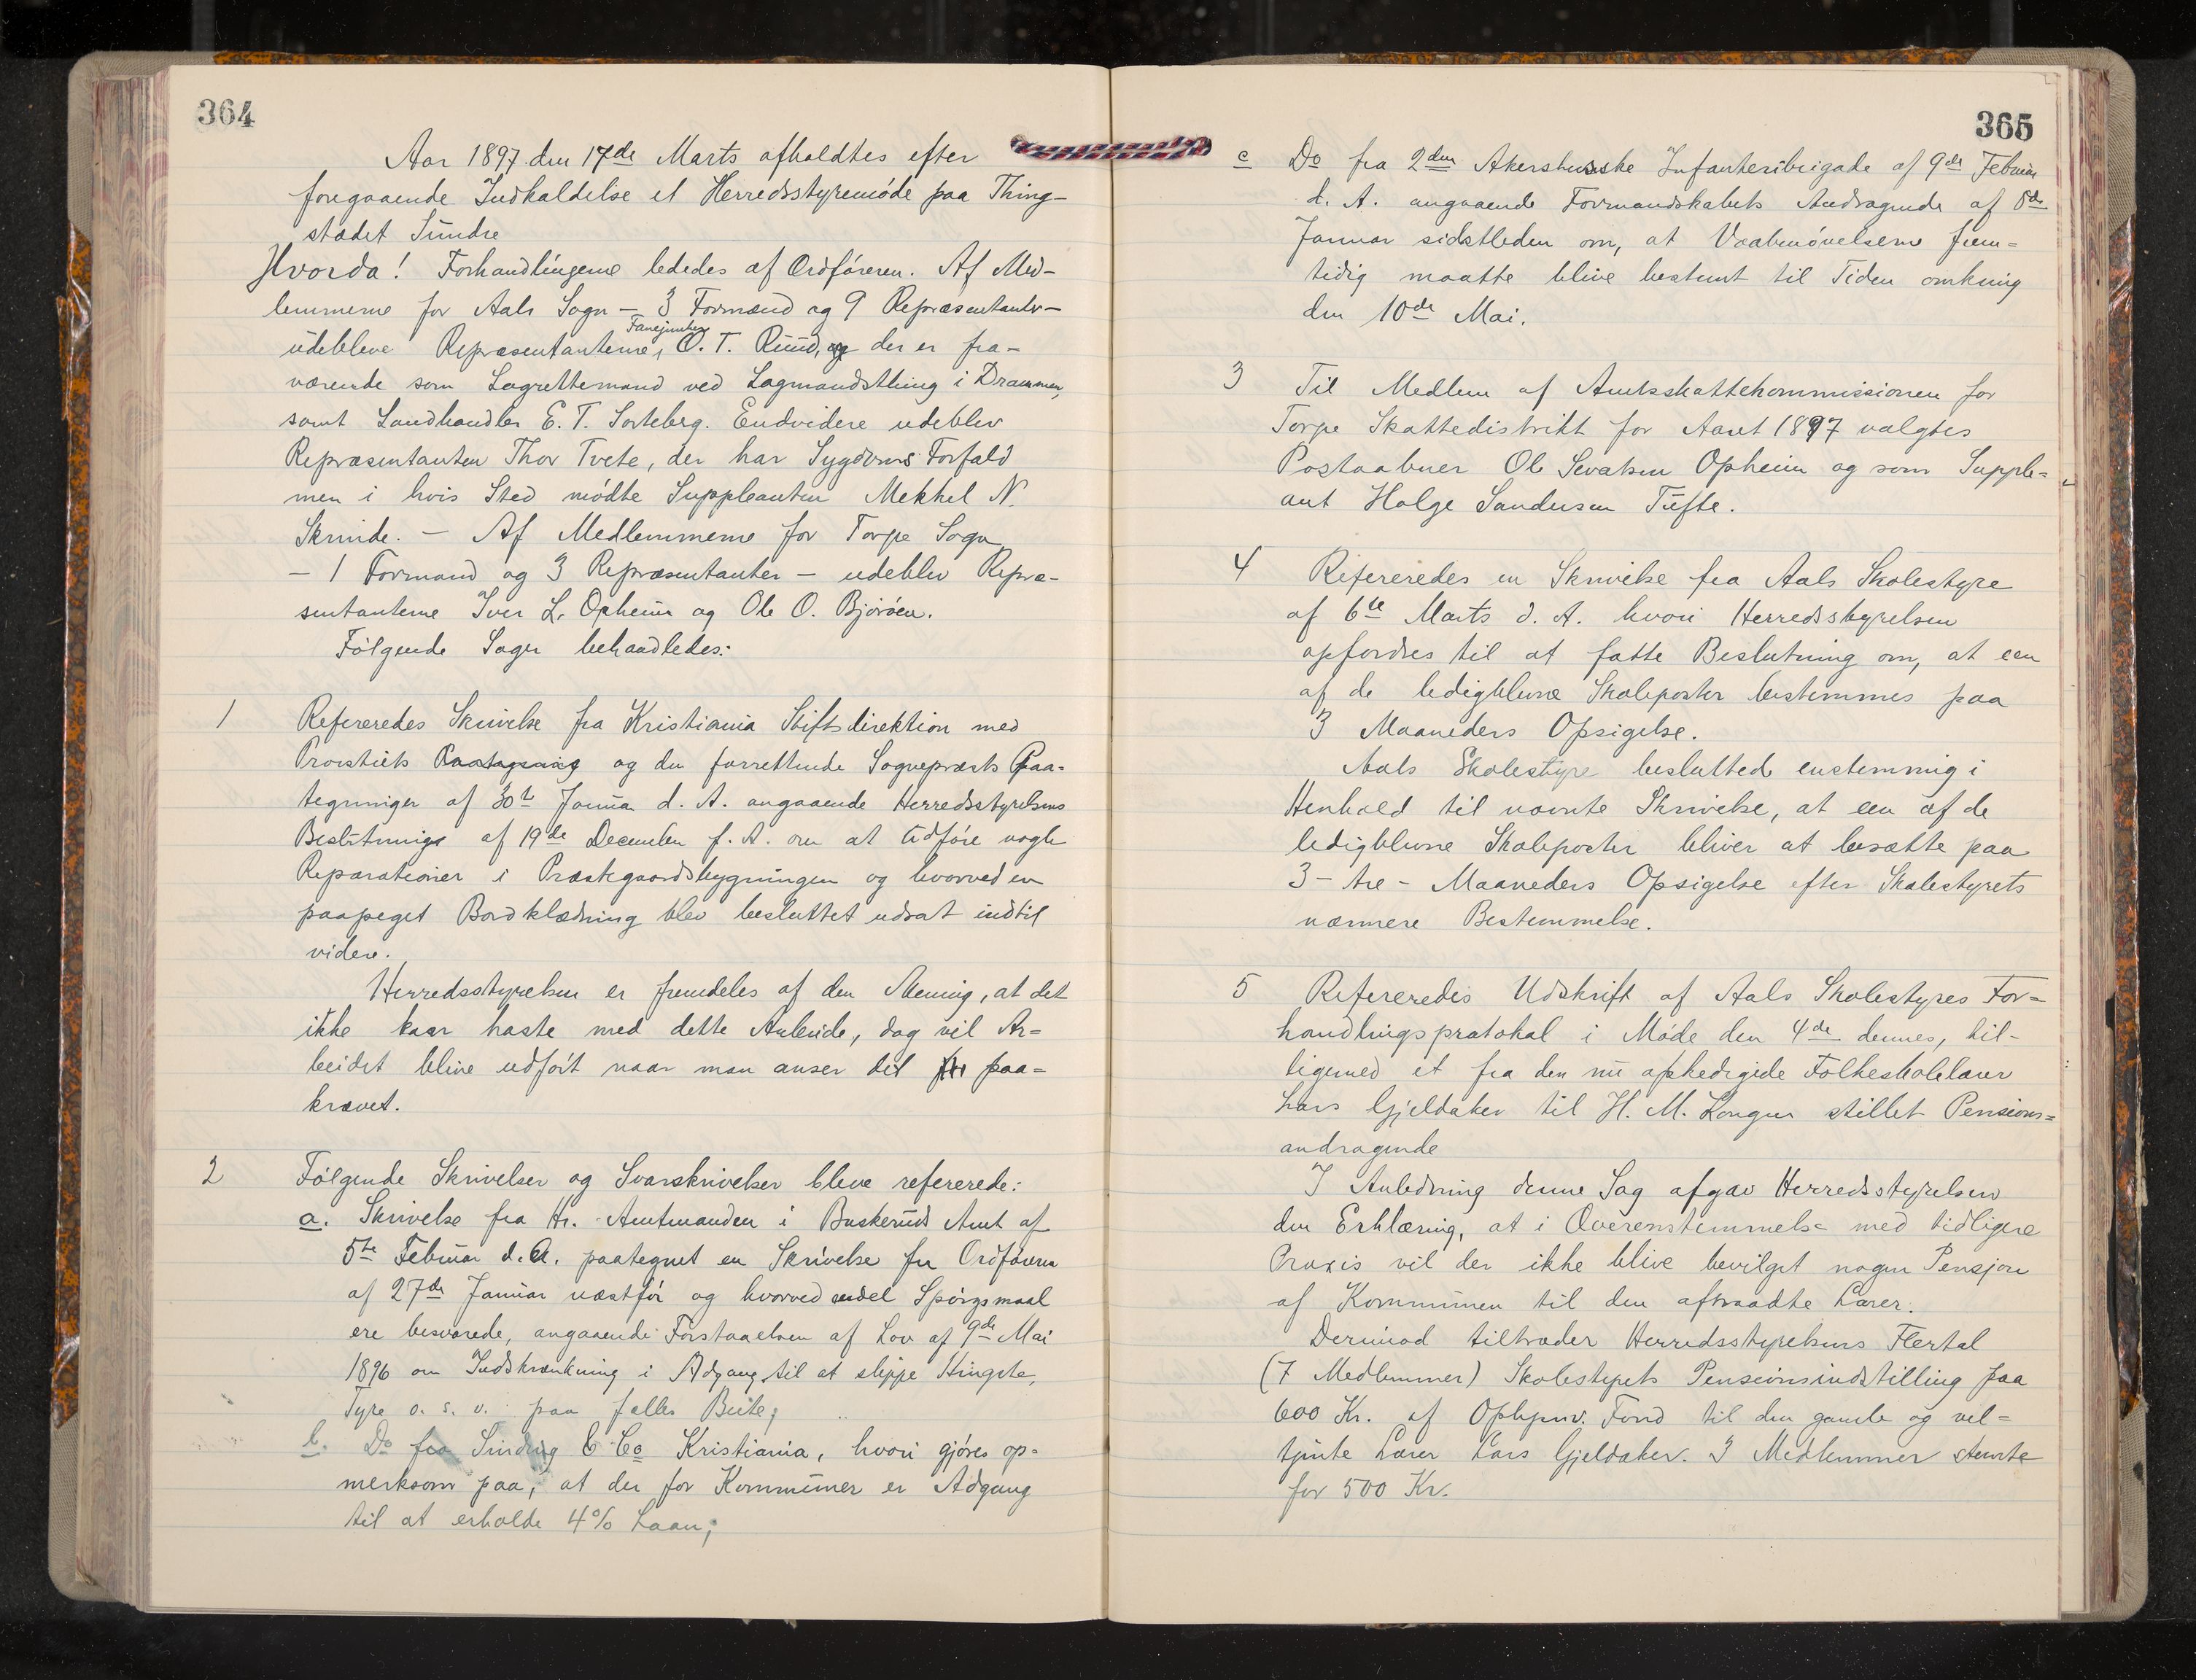 364
Aar 1897 den 17de Marts afholdtes efter
foregaaende Indkaldelse et Herredsstyremøde paa Thing-
stedet Sundre
Hvorda! Forhandlingerne lededes af Ordføreren. Af Med-
lemmerne for Aals Sogn – 3 Formænd og 9 Repræsentanter –
Fanejunker
udebleve Repræsentanterne, O. T. Ruud, og der er fra-
værende som Lagrettemand ved Lagmandsthing i Drammen,
samt Landhandler E. T. Sorteberg. Endvidere udeblev
Repræsentanten Thor Tvete, der har Sygdoms Forfald
men i hvis Sted mødte Suppleanten Mekkel N.
Skrinde. – Af Medlemmerne for Torpe Sogn
– 1 Formand og 3 Repræsentanter – udeblev Repræ-
sentanterne Iver L. Opheim og Ole O. Bjørøen.
Følgende Sager behandledes:
1 Refereredes Skrivelse fra Kristiania Stiftsdirektion med
Provstiets Paategning og den forrettende Sogneprests Paa-
tegninger af 30te Januar d. A. angaaende Herredsstyrelsens
Beslutninge af 19de December f. A. om at udføre nogle
Reparationer i Præstegaardsbygningen og hvorved en
paapeget Bordklædning blev besluttet udsat indtil
videre.
Herredsstyrelsen er fremdeles af den Mening, at det
ikke kan haste med dette Anliende, dog vil Ar-
beidet blive udført naar man anser det for paa-
krævet.
2 Følgende Skrivelser og Svarskrivelser bleve refererede:
a. Skrivelse fra Hr. Amtmanden i Buskeruds Amt af
5te Februar d. A. paategnet en Skrivelse fra Ordføreren
af 27de Januar næstfør og hvorved endel Spørgsmaal
ere besvarede, angaaende Forstaaelsen af Lov af 9de Mai
1896 om Indskrænkning i Adgang til at slippe Hingste,
Tyre o. s. v. paa fælles Beite;
b. Do fra Sinding & Co Kristiania, hvori gjøres op-
merksom paa, at der for Kommuner er Adgang
til at erholde 4% Laan;
365
c Do fra 2den Akershusske Infanteribrigade af 9de Februar
d. A. angaaende Formandskabets Andragende af 8de
Januar sidstleden om, at Vaabenøvelserne frem-
tidig maatte blive bestemt til Tiden omkring
den 10de Mai.
3 Til Medlem af Amtsskattekommissionen for
Torpe Skattedistrikt for Aaret 1897 valgtes
Postaabner Ole Sevatsen Opheim og som Supple-
ant Holge Sandersen Tufte.
4 Refereredes en Skrivelse fra Aals Skolestyre
af 6te Marts d. A. hvori Herredsstyrelsen
opfordres til at fatte Beslutning om, at een
af de ledigblevne Skoleposter bestemmes paa
3 Maaneders Opsigelse.
Aals Skolestyre besluttede enstemmig i
Henhold til nævnte Skrivelse, at een af de
ledigblevne Skoleposter bliver at besætte paa
3 – tre – Maaneders Opsigelse efter Skolestyrets
nærmere Bestemmelse.
5 Refereredes Udskrift af Aals Skolestyres For-
handlingsprotokol i Møde den 4de dennes, til-
ligemed et fra den nu afskedigede Folkeskolelærer
Lars Gjeldaker til H. M. Kongen stillet Pensions-
andragende
I Anledning denne Sag afgav Herredsstyrelsen
den Erklæring, at i Overensstemmelse med tidligere
Praxis vil der ikke blive bevilget nogen Pensjon
af Kommunen til den aftraadte Lærer.
Derimod tiltræder Herredsstyrelsens Flertal
(7 Medlemmer) Skolestyrets Pensionsindstilling paa
600 Kr. af Oplysnv. Fond til den gamle og vel-
tjente Lærer Lars Gjeldaker. 3 Medlemmer stemte
for 500 Kr.